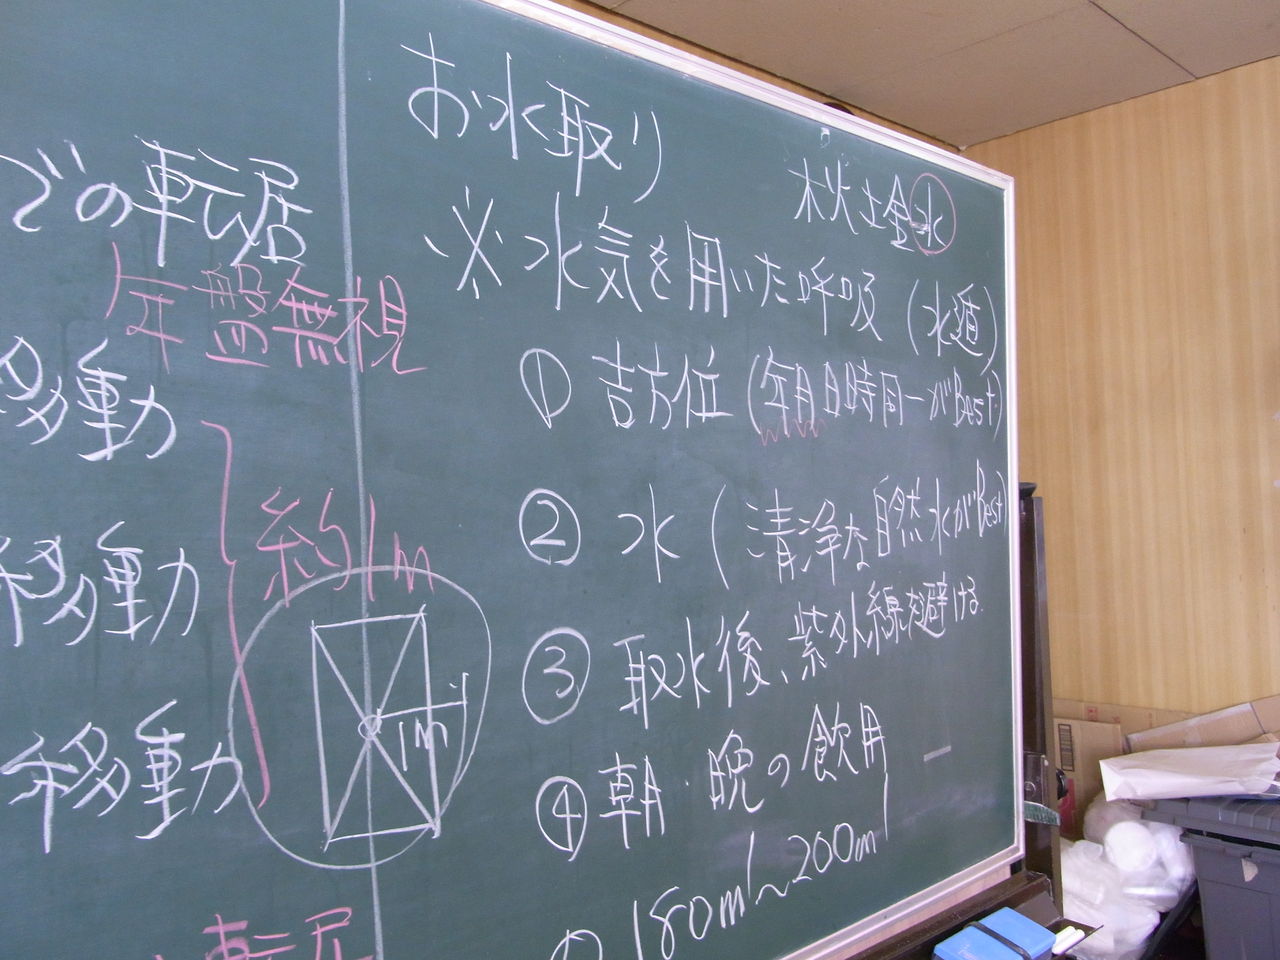 での転居
年盤無視
移動
約1m
移動
1m
移動
転居
お水取り
木火土金水
※水気を用いた呼吸(水遁)
① 吉方位(年月日時同一がBest)
② 水(清浄な自然水がBest)
③ 取水後、紫外線を避ける。
④ 朝・晩の飲用
の180ml〜200ml